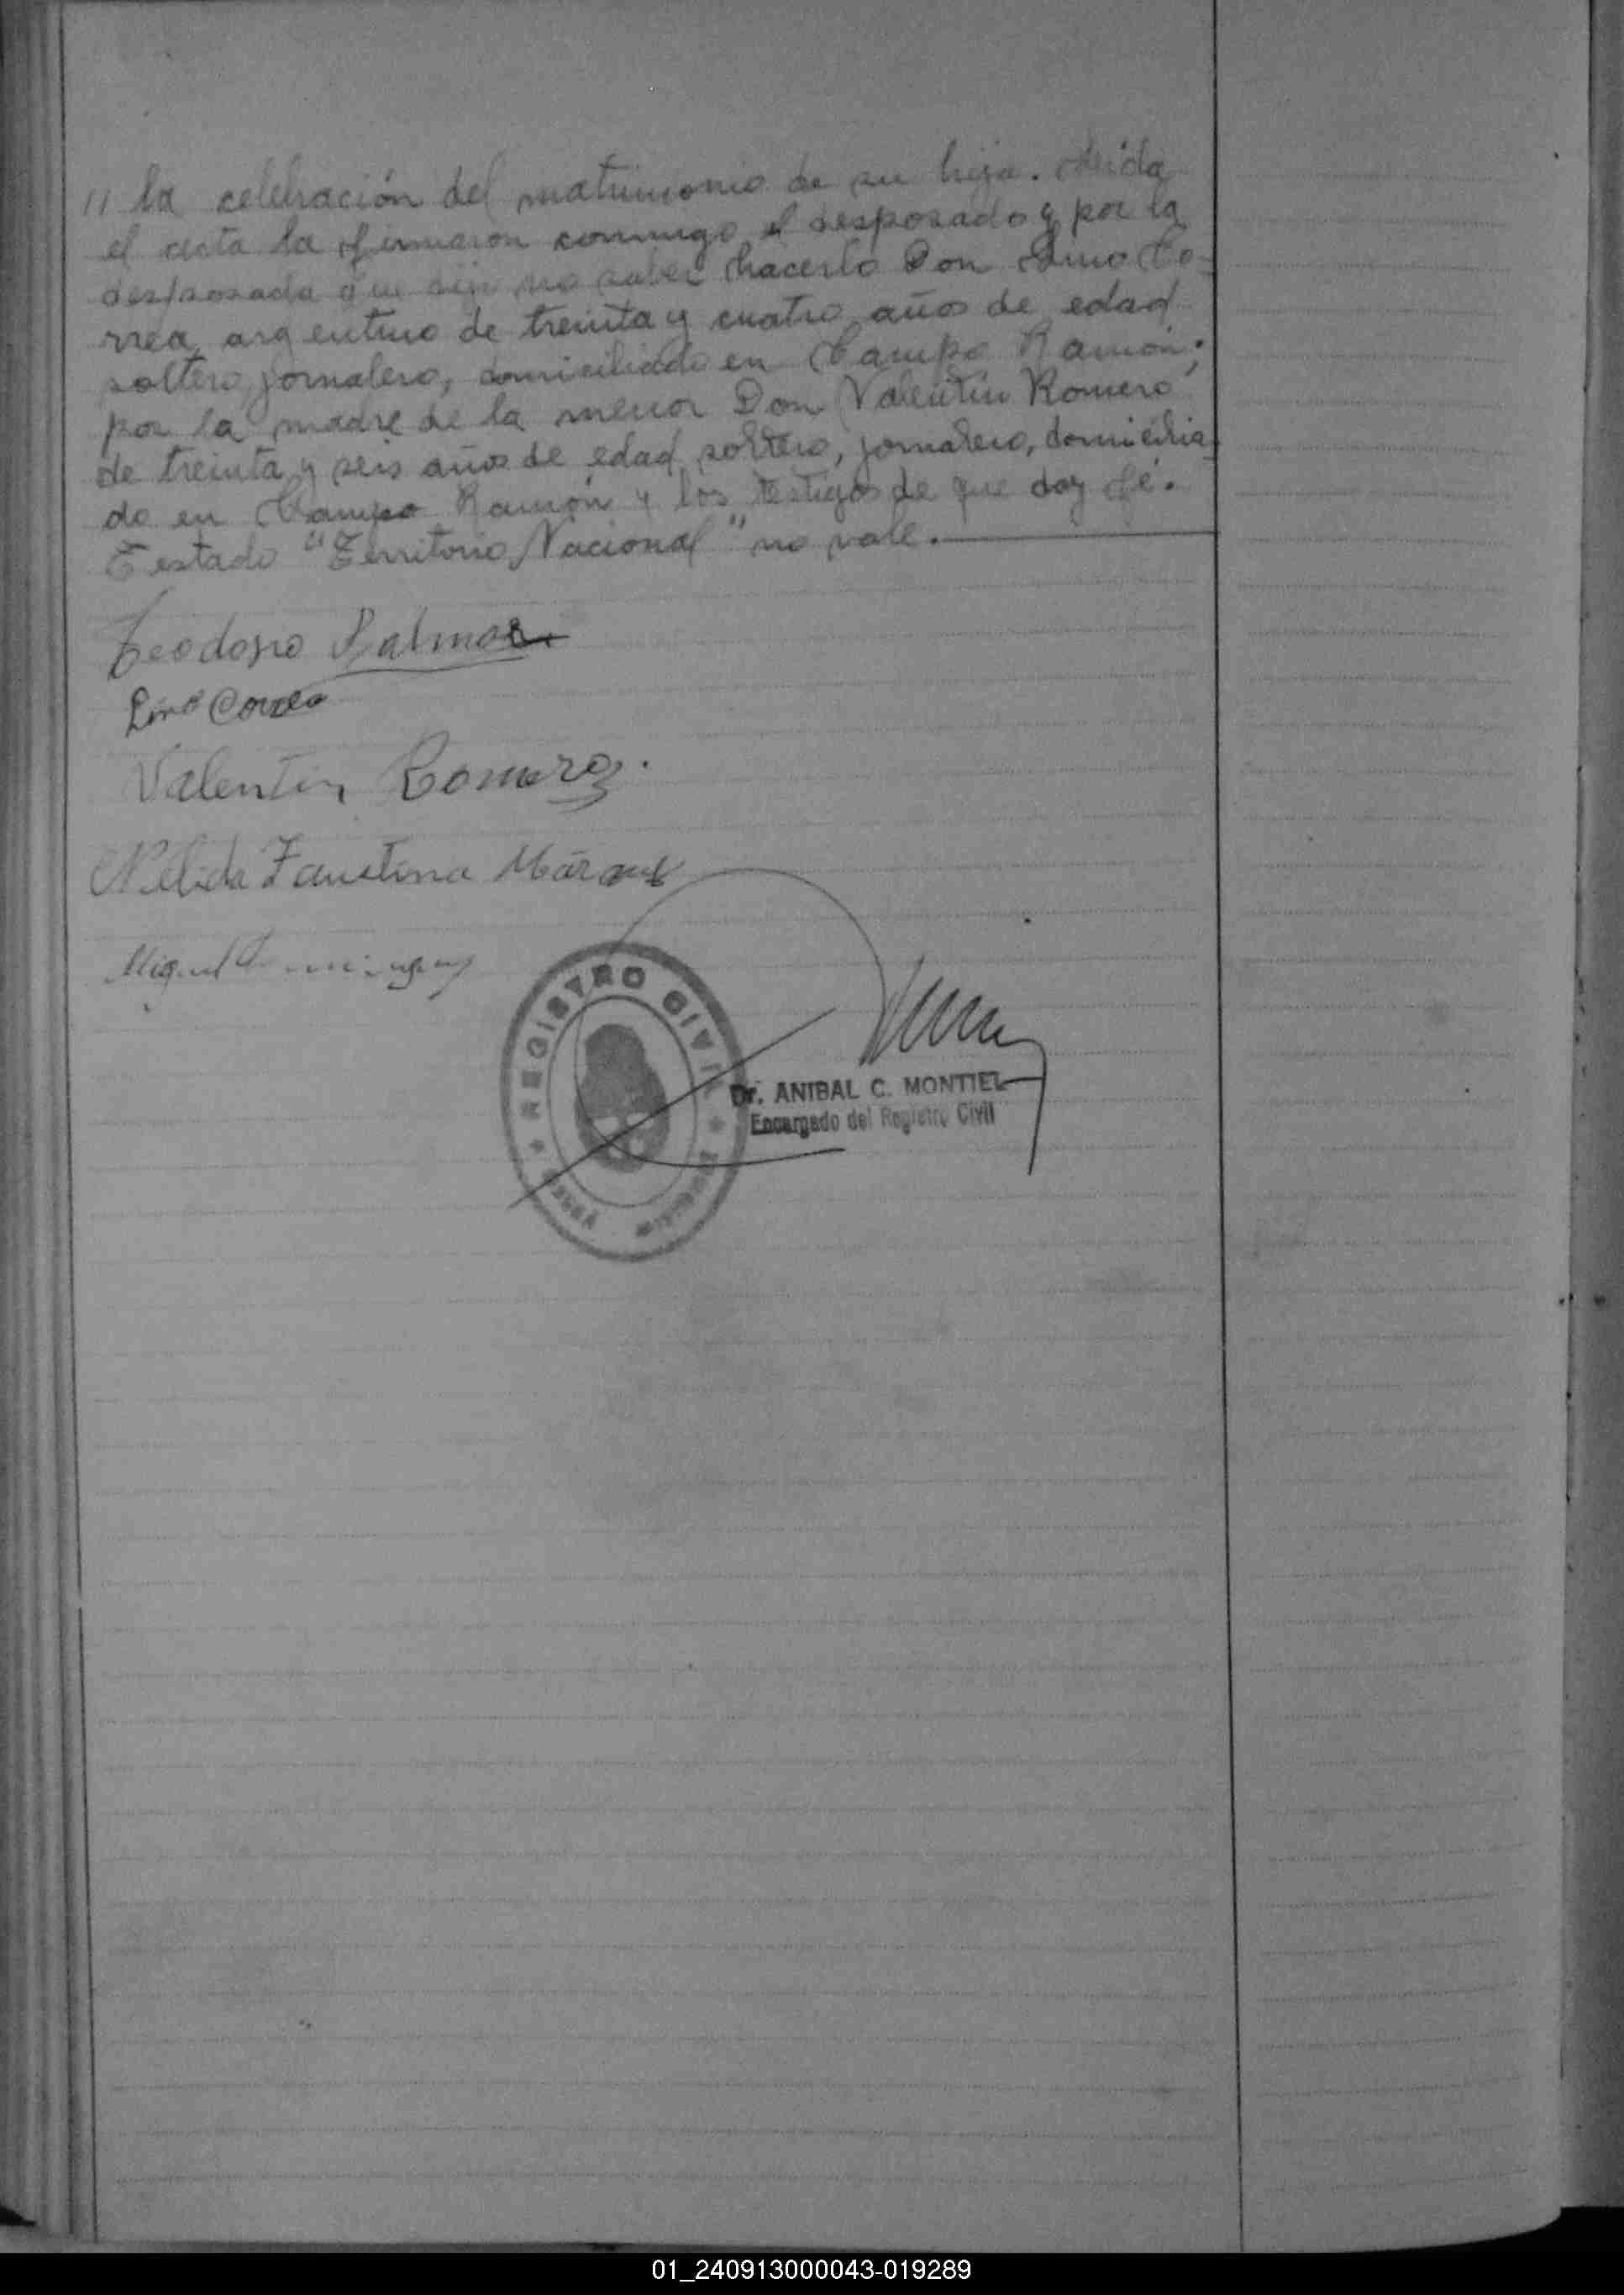 // la celebración del matrimonio de su hija. Leida
el acta la firmaron conmigo el desposado y por la
desposada que dijo no saber hacerlo Don Lino Co-
rrea, argentino de treinta y cuatro años de edad
soltero, jornalero, domiciliado en Campo Ramón;
por la madre de la menor Don Valentín Romero,
de treinta y seis años de edad, soltero, jornalero, domicilia
do en Campo Ramón y los testigos de que doy fé.
Testado "Territorio Nacional" no vale.
Teodosio
Lino Correa
Valentin Romero.
Nelida Faustina Márquez
Miguel
REGISTRO CIVIL
Dr. ANIBAL C. MONTIEL
Encargado del Registro Civil
MISIONES
01_240913000043-019289